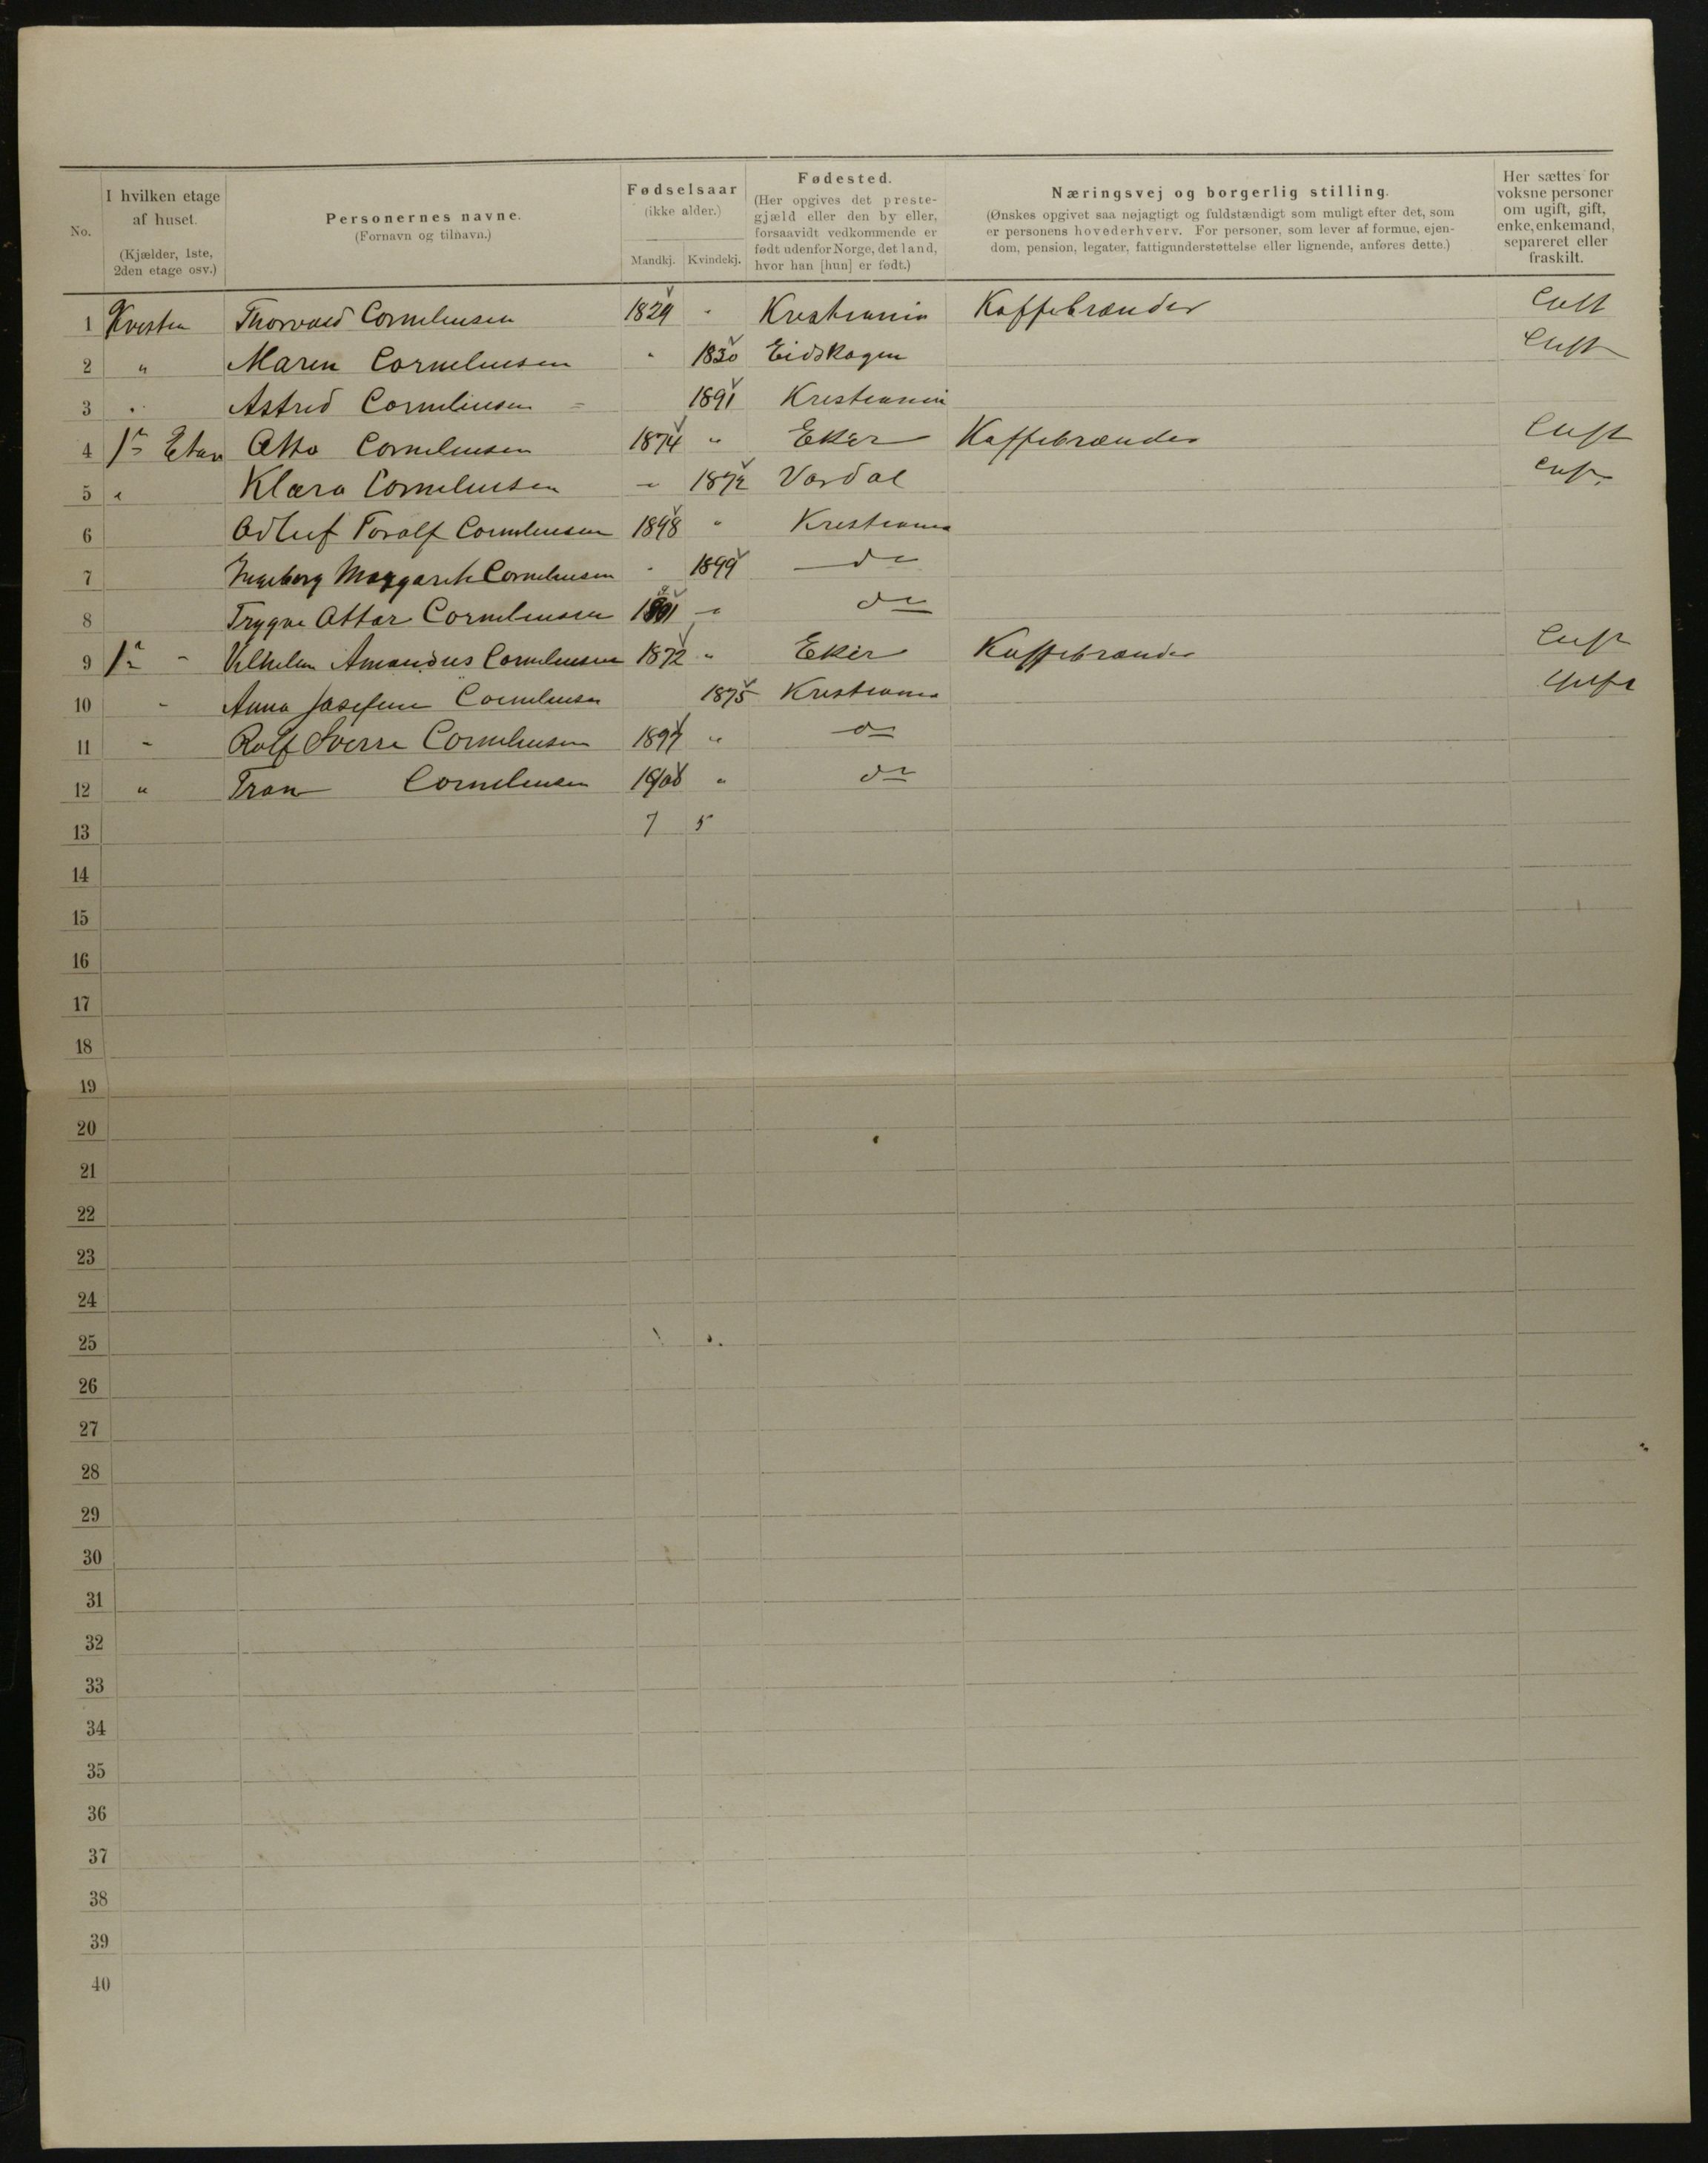 No.
I hvilken etage af huset.
(Kjælder, 1ste, 2den etage osv.)
Personernes navne.
(Fornavn og tilnavn.)
Fødselsaar
(ikke alder.)
Mandkj. Kvindekj.
Fødested.
(Her opgives det prestegjæld eller den by eller, forsaavidt vedkommende er født udenfor Norge, det land, hvor han [hun] er født.)
Næringsvej og borgerlig stilling.
(Ønskes opgivet saa nøjagtigt og fuldstændigt som muligt efter det, som er personens hovederhverv. For personer, som lever af formue, ejendom, pension, legater, fattigunderstøttelse eller lignende, anføres dette.)
Her sættes for voksne personer om ugift, gift, enke, enkemand, separeret eller fraskilt.
1 Kvesten Thorvald Corneliussen 1829 " Kristiania Kaffebrænder Gift
2 " Maren Corneliussen " 1830 Eidskogen Gift
3 " Astrid Corneliussen 1891 Kristiania
4 1ste Etan Otto Corneliussen 1874 " Eker Kaffebrænder Gift
5 " Klara Corneliussen " 1872 Vardal Gift
6 Adluf Toralf Corneliussen 1898 " Kristiania
7 Ingeborg Margarete Corneliussen " 1899 do
8 Trygve Attar Corneliussen 1901 " do
9 1ste " Vilhelm Amandus Corneliussen 1872 " Eker Kaffebrænder Gift
10 " Anna Josefine Corneliussen 1875 Kristiania Gift
11 " Rolf Sverre Corneliussen 1897 " do
12 " Corneliussen 1900 " do
13 7 5
14
15
16
17
18
19
20
21
22
23
24
25
26
27
28
29
30
31
32
33
34
35
36
37
38
39
40